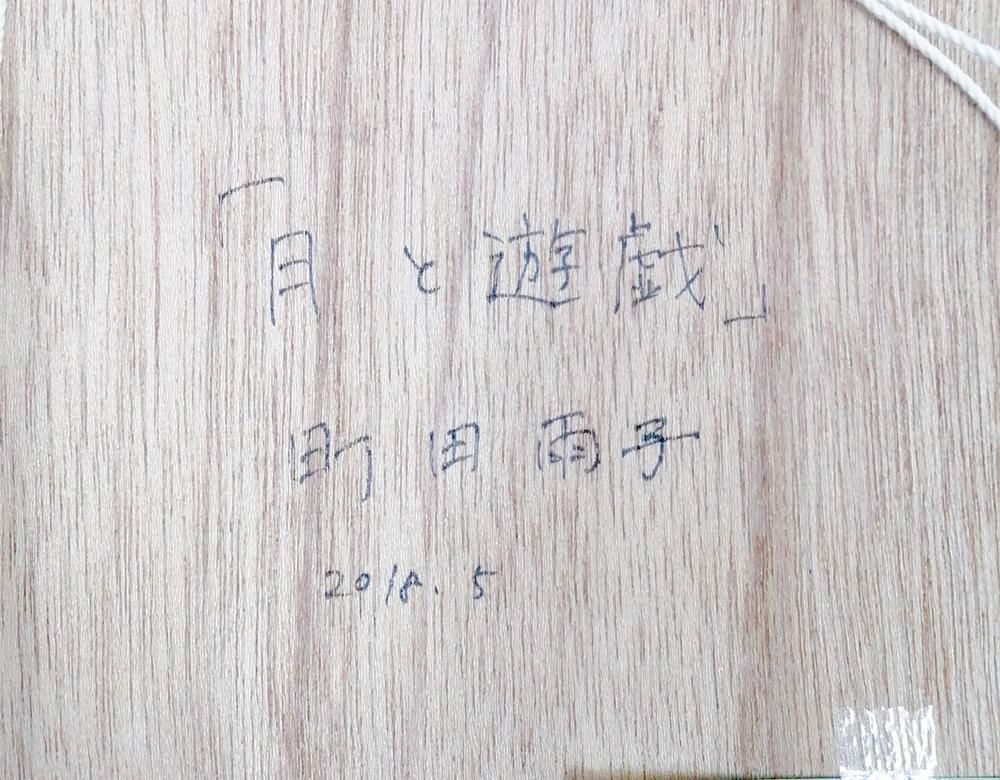 「月と遊戯」
町田雨子
2018.5